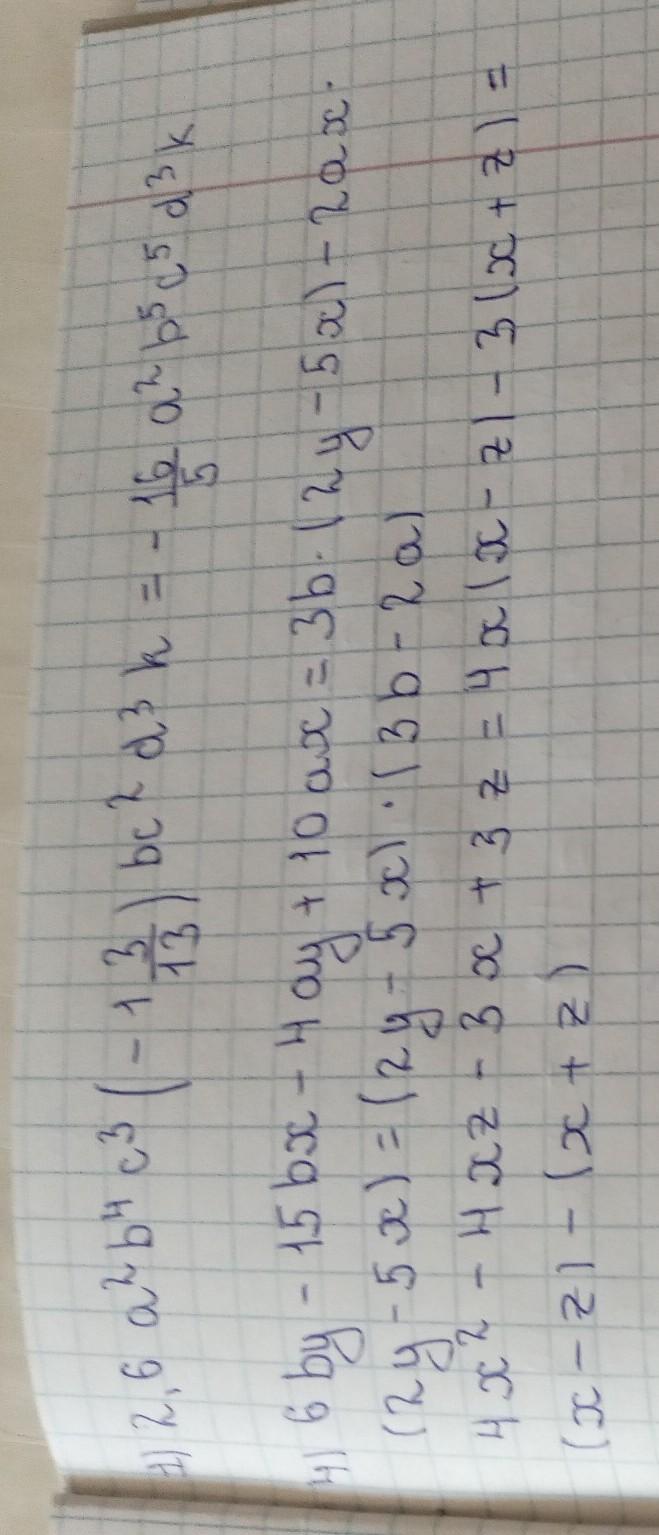 1) 2,6 a²b⁴c³(-1 3/13)bc²d³k = -16/5 a²b⁵c⁵d³k
4) 6by - 15bx - 4ay + 10ax = 3b·(2y - 5x) - 2ax·
(2y - 5x) = (2y - 5x)·(3b - 2a)
4x² - 4xz - 3x + 3z = 4x(x - z) - 3(x + z) =
(x - z) - (x + z)